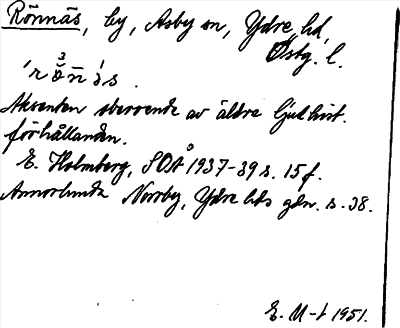 Rönnäs, by, Asby sn, Ydre hd,
Östg. l.
Akcenten beroende av äldre ljudhist.
förhållanden.
E. Holmberg, SOÅ 1937-39 s. 15 f.
Annorlunda Norrby, Ydre hds gdn. s. 38.
E. M-t 1951.